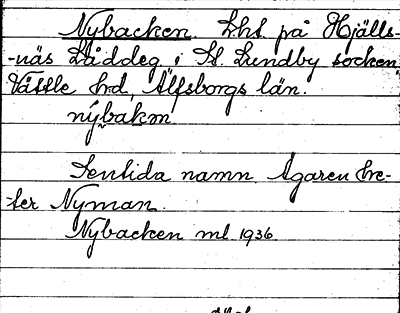 Nybacken. Lht på Hjälls-
-näs Låddeg i St. Lundby socken,
Vättle hd, Älfsborgs län.
nýbakm
Sentida namn. Ägaren he-
-ter Nyman.
Nybacken ml 1936